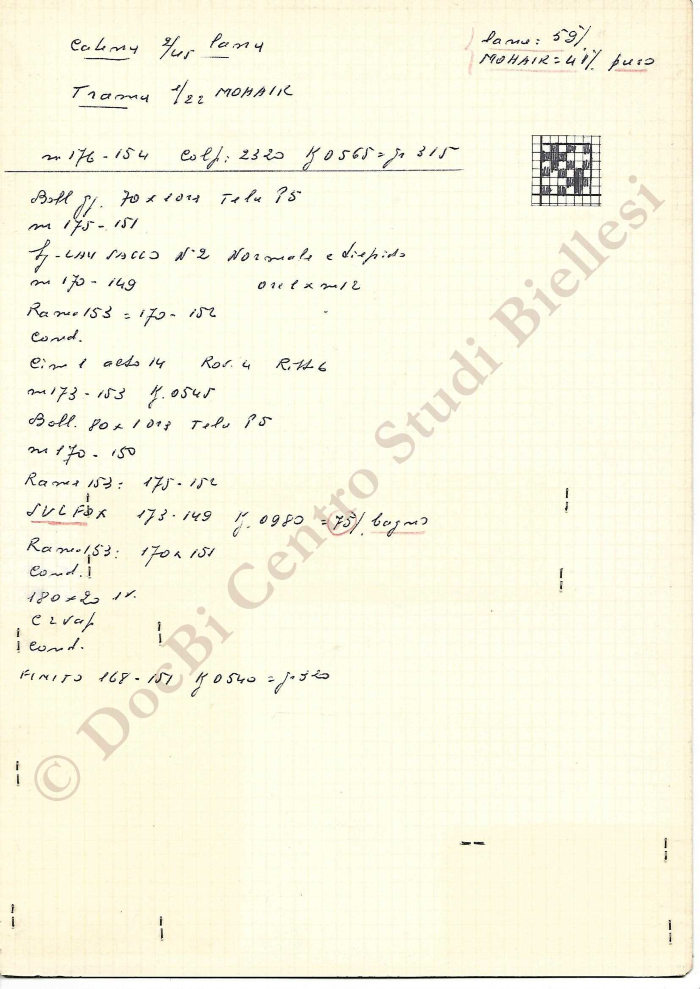 Catena 2/45 lana
lana: 59%
MOHAIR = 41% puro
Trama 1/22 MOHAIR
m 176 - 154 Colp: 2320 K 0565 = gr 315
Boll 70 x 1 ora Tela P5
m 175 - 151
LAV SACCO N-2 Normale e tiepido
m 170 - 149
Rame 153 = 170 - 152
Cond.
Cim 1 14 4 6
m 173 - 153 K. 0545
Boll. 80 x 1 ora Tela P5
m 170 - 150
Rame 153: 175 - 152
SULFOX 173 - 149 K. 0980 = 75% bagno
Rame 153: 170 x 151
Cond.
180 x 20
Cond.
FINITO 168 - 151 K 0540 = gr 320
© DocBi Centro Studi Biellesi